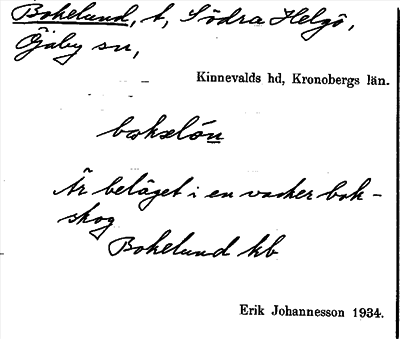 Bokelund, t, Södra Helgö,
Öjaby sn,
Kinnevalds hd, Kronobergs län.
Är beläget i en vacker bok-
skog
Bokelund kb
Erik Johannesson 1934.